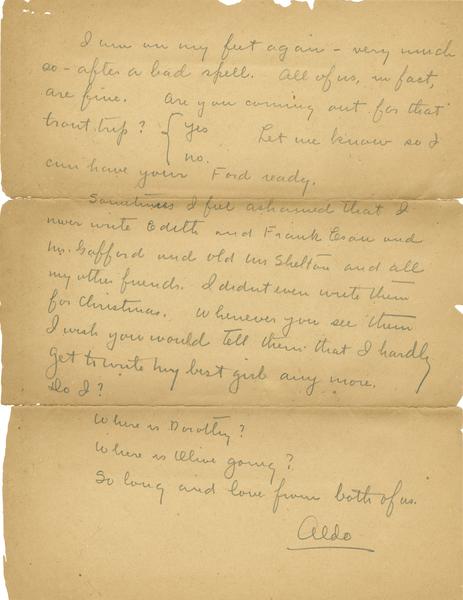 I am on my feet again - very much
so - after a bad spell. All of us, in fact,
are fine. Are you coming out for that
trout trip? { yes Let me know so I
no.
can have your Ford ready.
Sometimes I feel ashamed that I
never write Edith and Frank and
Mr. Gafford and old Mr Shelton and all
my other friends. I didnt even write them
for Christmas. Whenever you see them
I wish you would tell them that I hardly
get to write my best girl any more.
Do I?
Where is Dorothy?
Where is Olive going?
So long and love from both of us.
Aldo